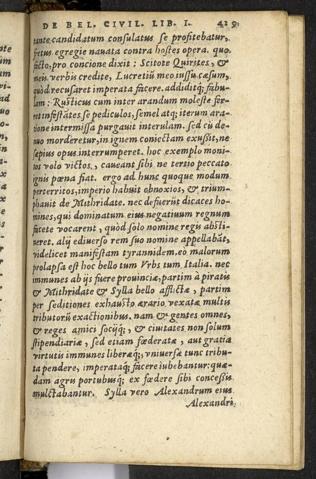 DE BEL. CIVIL. LIB. I. 429
tante candidatum consulatus se profitebatur,
fretus egregie nauata contra hostes opera. quo
facto, pro concione dixit: Scitote Quirites, &
meis verbis credite, Lucretiū meo iussu cæsum,
quòd recusaret imperata facere. addiditq; fabu-
lam: Rusticus cum inter arandum moleste fer-
infestātes se pediculos, semel atq; iterum ara-
tione intermissa purgauit interulam. sed cū de-
nuo morderetur, in ignem coniectam exussit, ne
sepius opus interrumperet. hoc exemplo moni-
tos volo victos, caueant sibi ne tertio peccato
ignis pœna fiat. ergo ad hunc quoque modum
perterritos, imperio habuit obnoxios, & trium-
phauit de Mithridate. nec defuerūt dicaces ho-
mines, qui dominatum eius negatiuum regnum
facete vocarent, quòd solo nomine regis absti-
neret. alij ediuerso rem suo nomine appellabāt,
videlicet manifestam tyrannidem, eo malorum
prolapsa est hoc bello tum Vrbs tum Italia. nec
immunes ab ijs fuere prouinciæ, partim à piratis
& Mithridate & Sylla bello afflictæ, partim
per seditiones exhausto ærario vexatæ multis
tributorū exactionibus. nam & gentes omnes,
& reges amici socijq;, & ciuitates non solum
stipendiariæ, sed etiam fœderatæ, aut gratia
virtutis immunes liberæq;, vniuersæ tunc tribu-
ta pendere, imperataq; facere iubebantur: quæ-
dam agris portubusq; ex fœdere sibi concessis
mulctabantur. Sylla vero Alexandrum eius
Alexandri